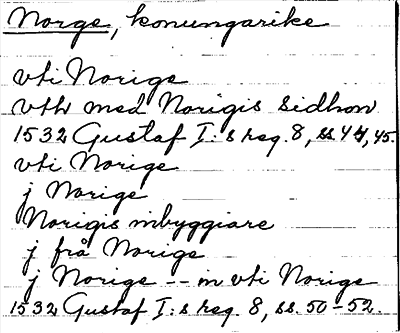 Norge, konungarike
vti Norige
vth med Norigis sidhon
1532 Gustaf I:s reg. 8, ss. 44, 45.
vti Norige
j Norige
Norigis inbyggiare
j frå Norige
j Norige -- in vti Norige
1532 Gustaf I:s reg. 8, ss. 50-52.